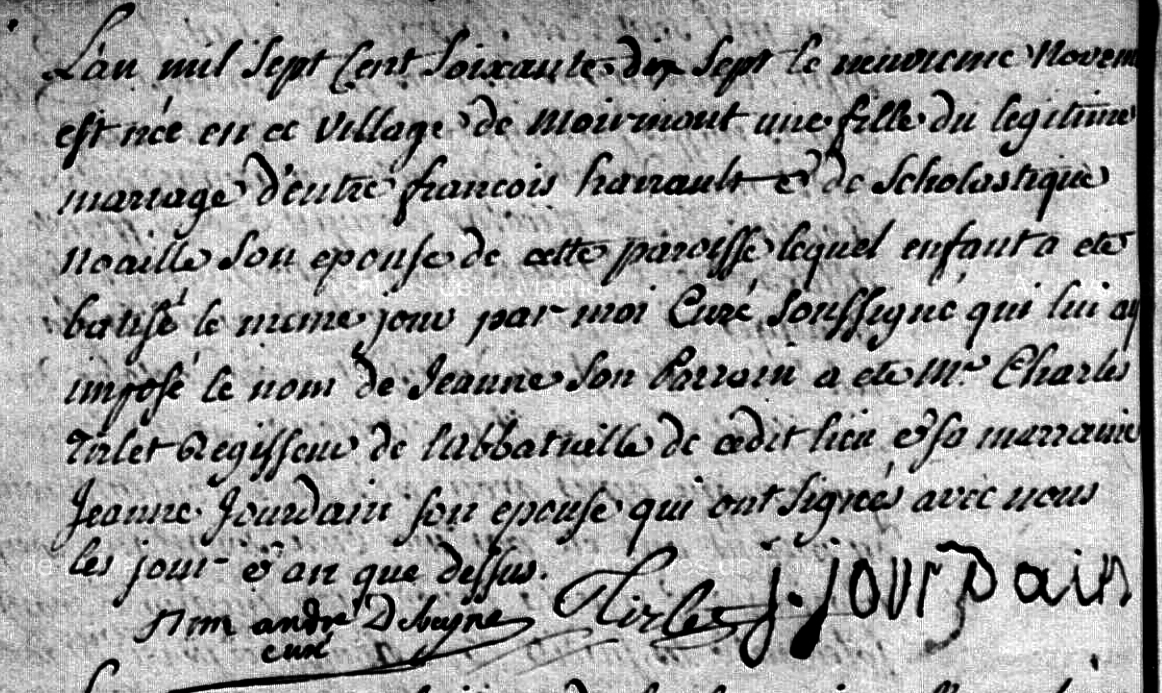 L'an mil Sept Cent Soixante dix Sept le neuvieme Novem
est née en ce Village de Moirmont une fille du legitime
mariage d'entre francois hairault et de Scholastique
Noaille Son epouse de cette paroisse lequel enfant a eté
batisé le meme jour par moi Curé Soussigné qui lui ay
imposé le nom de Jeanne Son Parrain a eté Mr. Charles
Tirlet Regisseur de l'abbatialle de cedit lieu & sa marraine
Jeanne Jourdain son epouse qui ont signés avec nous
les jour & an que dessus.
andré
curé
Tirlet
J. JOURDain